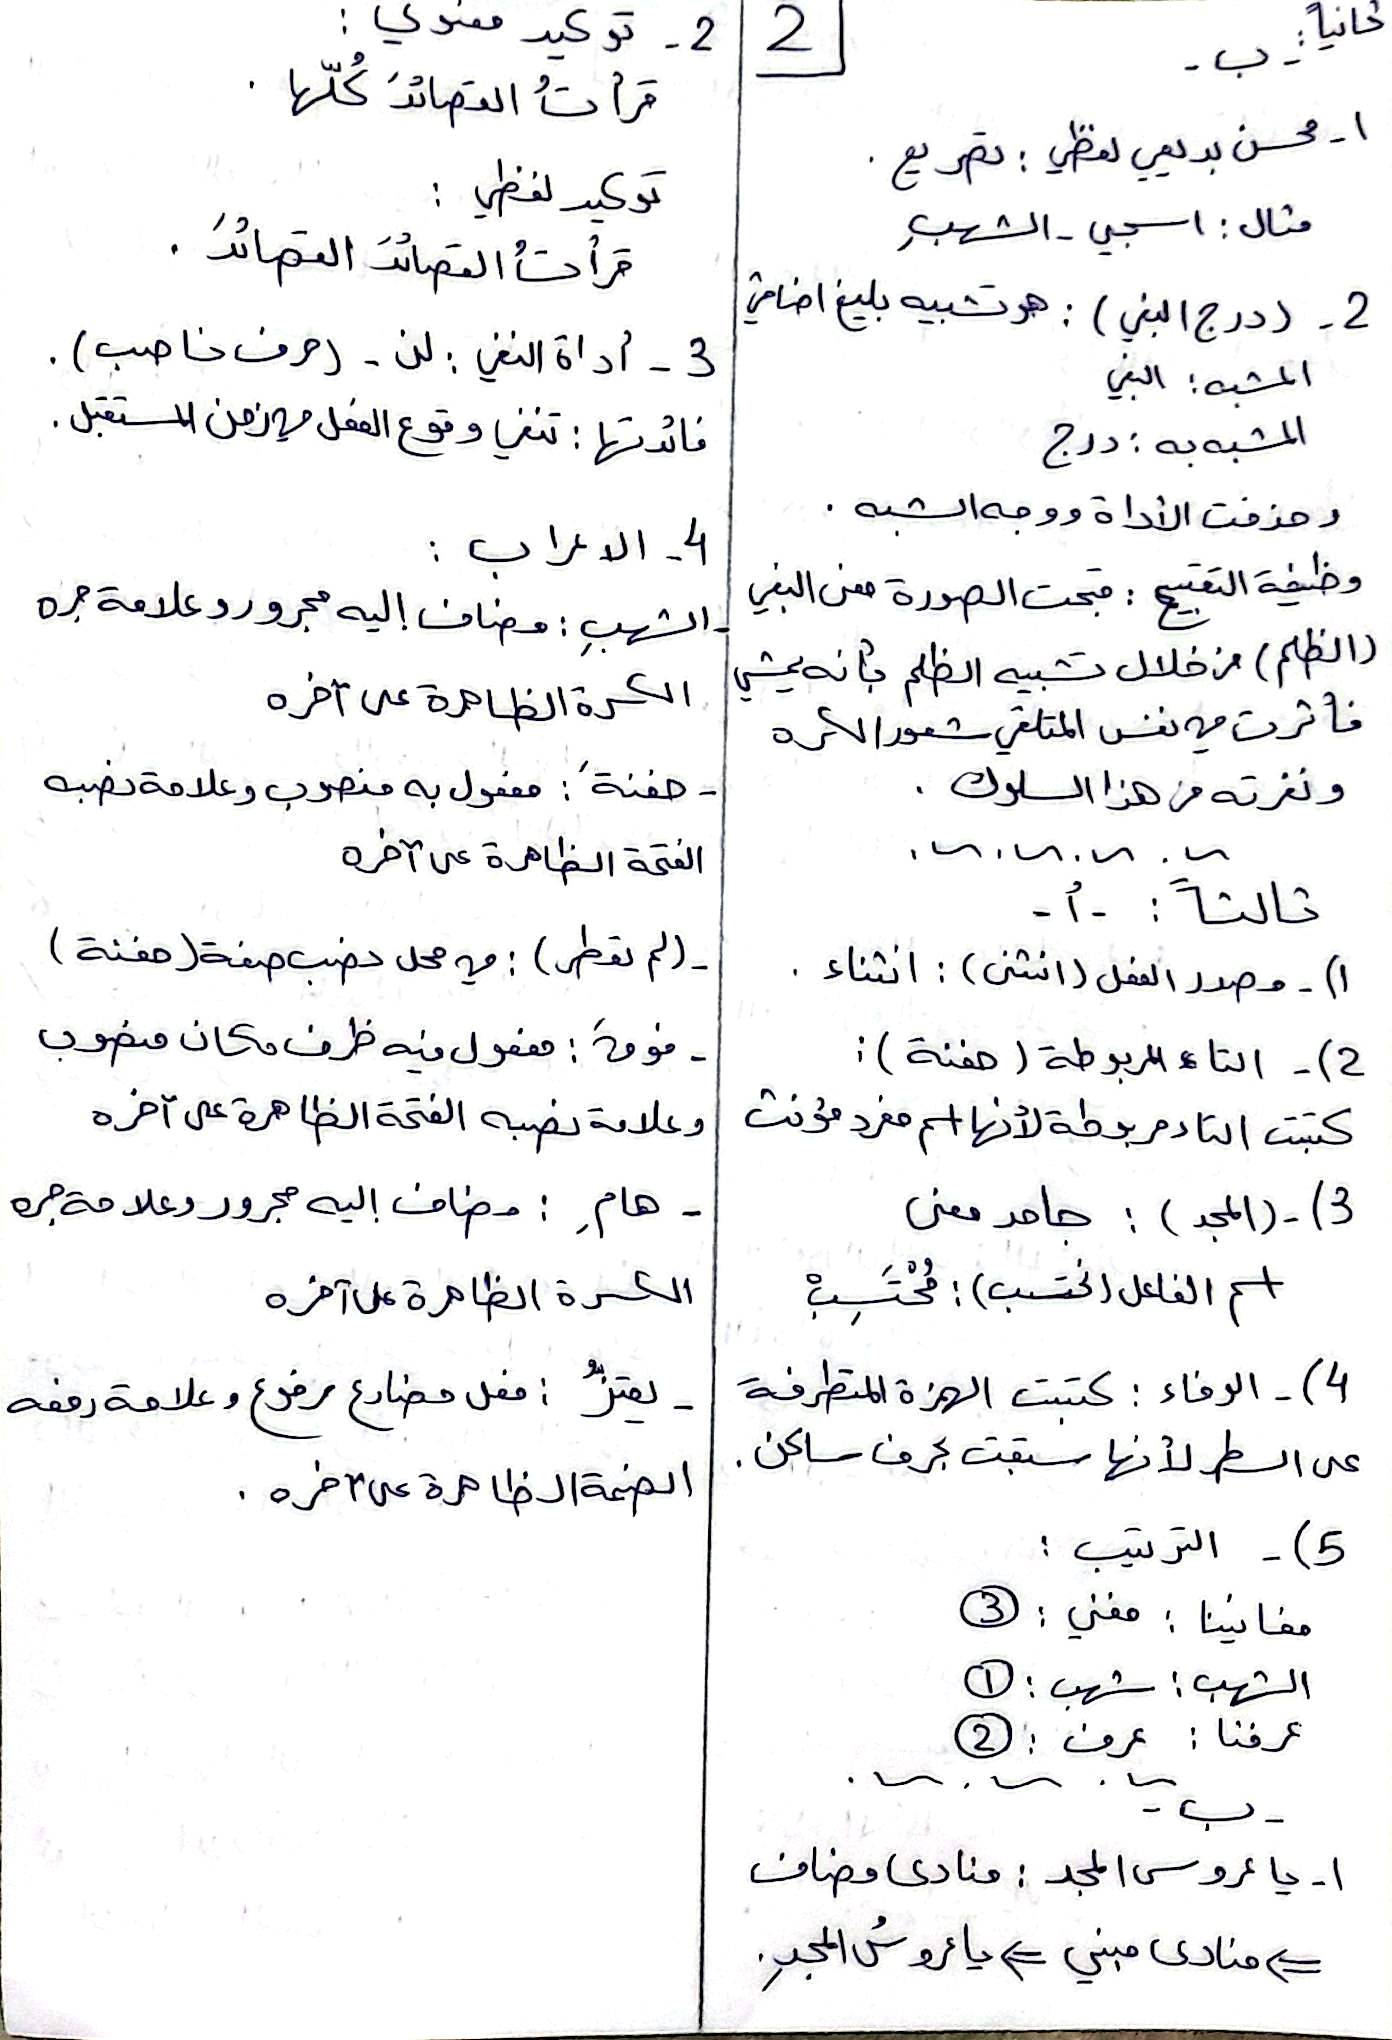 2
ثانياً: - ب -
1- محسن بديعي لفظي : تصريع .
مثال : اسحبي - الشهبِ
2- (درج البغي) : هو تشبيه بليغ اضافي
المشبه : البغي
المشبه به : درج
وحذفت الأداة ووجه الشبه .
وظيفة التقبيح : قبحت الصورة معنى البغي
(الظلم) من خلال تشبيه الظلم بأنه يمشي
فأثرت في نفس المتلقي شعور الكره
ونفرته من هذا السلوك .
ثالثاً : - أ -
1)- مصدر الفعل (انثنى) : انثناء .
2)- التاء المربوطة (حفنة) :
كتبت التاء مربوطة لأنها اسم مفرد مؤنث
3)- (المجد) : جامد معنى
اسم الفاعل (احتسب) : مُحْتَسِبْ
4)- الوفاء : كتبت الهمزة المتطرفة
على السطر لأنها سبقت بحرف ساكن .
5)- الترتيب :
مغانينا : مغني : 3
الشهب : شهب : 1
عرفنا : عرف : 2
- ب -
1- يا عروس المجد : منادى مضاف
<= منادى مبني <= يا عروسُ المجدِ .
2- توكيد معنوي :
قرأتُ القصائدَ كُلّها .
توكيد لفظي :
قرأتُ القصائدَ القصائدَ .
3- أداة النفي : لن - (حرف ناصب) .
فائدتها : تنفي وقوع الفعل في زمن المستقبل .
4- الاعراب :
- الشهبِ : مضاف إليه مجرور وعلامة جره
الكسرة الظاهرة على آخره
- حفنةَ : مفعول به منصوب وعلامة نصبه
الفتحة الظاهرة على آخره
- (لم تفطر) : في محل نصب صفة (حفنة)
- فوقَ : مفعول فيه ظرف مكان منصوب
وعلامة نصبه الفتحة الظاهرة على آخره
- هامِ : مضاف إليه مجرور وعلامة جره
الكسرة الظاهرة على آخره
- يعتزُّ : فعل مضارع مرفوع وعلامة رفعه
الضمة الظاهرة على آخره .